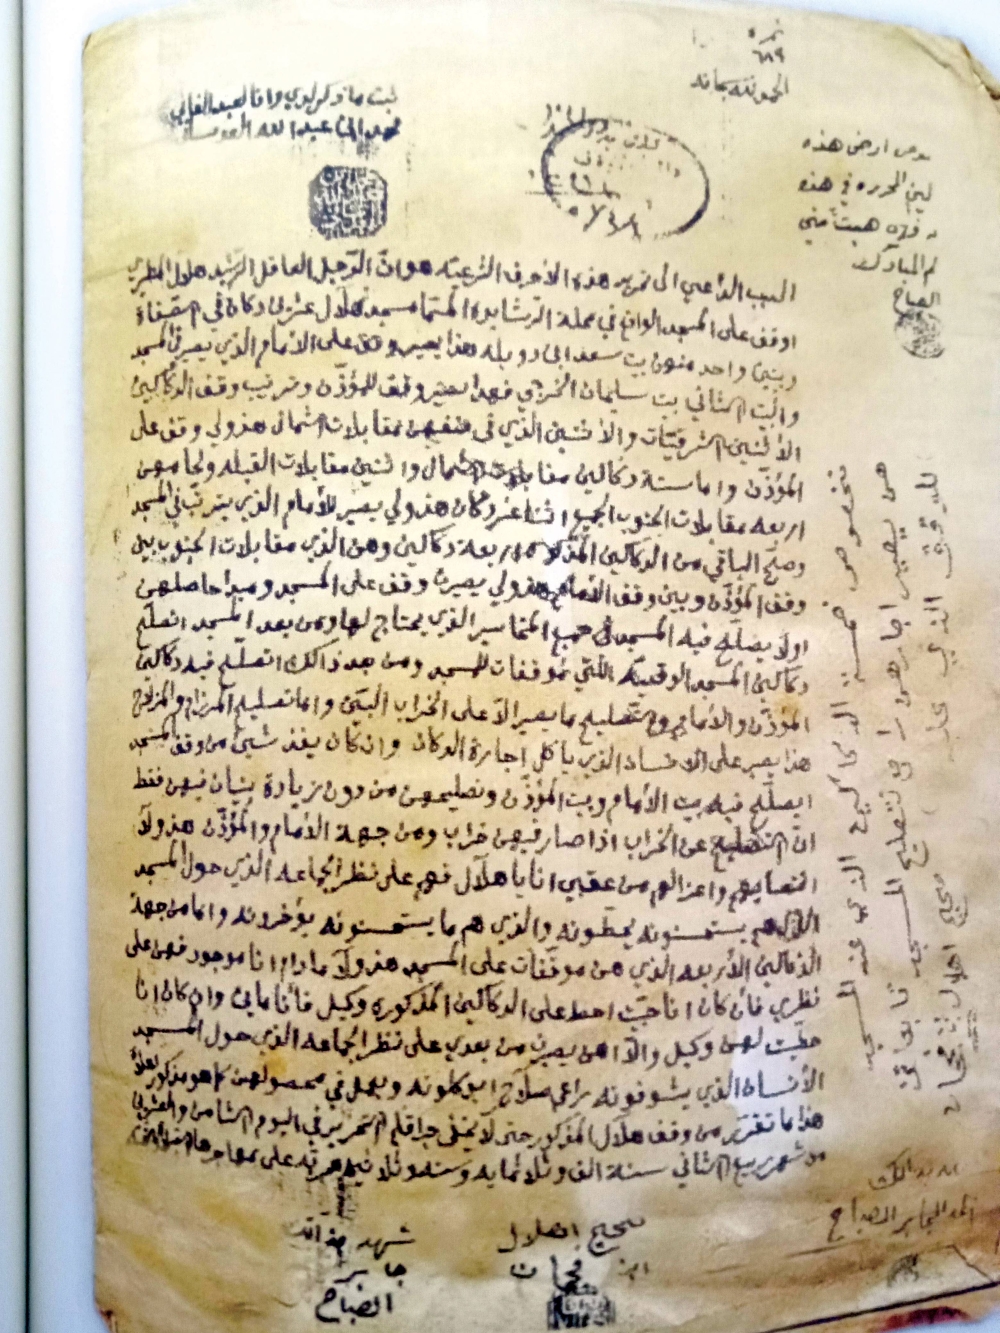 نمره
٦٨٩
الحمد لله سبحانه
ثبت ما ذكر لدي وانا العبد الفاني
محمد ابن عبدالله العدساني
ارض هذه
المحرره في هذه
هبتة مني
لم المبارك
الصباح
السبب الداعي الى تحرير هذه الأحرف الشرعيه هو انّ الرّجل العاقل الرشيد هلال المطيري
اوقف على المسجد الواقع في محلة الرشايده المسمّا مسجد هلال عشرين دكان في الصفاة
وبيتين واحد منهن بيت سعد ابن دويله هذا يصير وقف على الأمام الذي يصير في المسجد
والبيت الثاني بيت سليمان فهذا يصير وقف للمؤذّن وترتيب وقف الدكاكين
الأثنين الشرقيّات والأثنين الذّي في مقابلات الشمال هذولي وقف على
المؤذّن واما ستة دكاكين مقابلات الشمال واثنين مقابلات القبله ولجامعهن
اربعه مقابلات الجنوب الجميع اثنا عشر دكان هذولي يصير للأمام الذي يترتّب في المسجد
وصحّ الباقي من الدكاكين المذكوره اربعة دكاكين وهن الذي مقابلات الجنوب بين
وقف المؤذّن وبين وقف الأمام هذولي يصيرن وقف على المسجد ومبدا حاصلهن
اولا يصلّح فيه المسجد في جميع الذي يحتاج لها ومن بعد المسجد اتصلّح
دكاكين المسجد الوقفيّه اللّتي موقفات للمسجد ومن بعد ذالك اتصلّح فيه دكاكين
المؤذّن والأمام والتّصليح ما يصير الاّ على الخراب البيّن واما تصليح المرزام والمزلاج
هذا يصير على الانسان الذي ياكل اجارة الدكان وان كان يفذ شيئ من وقف المسجد
ايصلّح فيه بيت الأمام وبيت المؤذّن وتصليحهن من دون زيادة بنيان فيهن فقط
انّ التصليح عن الخراب اذا صار فيهن خراب ومن جهة الأمام والمؤذّن هذولا
انتصابهم واعزالهم من عقبي انا يا هلال فهم على نظر الجماعه الذي حول المسجد
الذي هم يستحسنونه يحطّونه والذي هم ما يستحسنونه يؤخرونه واما من جهة
الدكاكين الأربعه الذي هن موقّفات على المسجد هذولا ما دام انا موجود فهن على
نظري فأن كان انا حبّيت احط على الدكاكين المذكوره وكيل فأنا مابي وان كان انا
حطّيت لهن وكيل والاّ هن يصيرن من بعدي على نظر الجماعه الذي حول المسجد
الأنسان الذي يشوفونه براعي صلاح ايوكلونه ويعمل في محصولهن كما هو مذكور اعلاه
هذا ما تقرّر من وقف هلال المذكور حتى لا يخفى جرا قلم التحرير في اليوم الثامن والعشرين
من شهر ربيع الثاني سنة الف وثلاثمايه وستة وثلاثين هجريّه على مهاجرها
الدكاكين الذي عند المسجد
هن يصير اجارهن في تصليح المسجد
للوقف الذي عليه
صحيح اهلال ابن فجحان
صحيح اهلال
ابن فجحان
شهد بذالك
جابر
الصباح
شهد بذالك
احمد الجابر الصباح